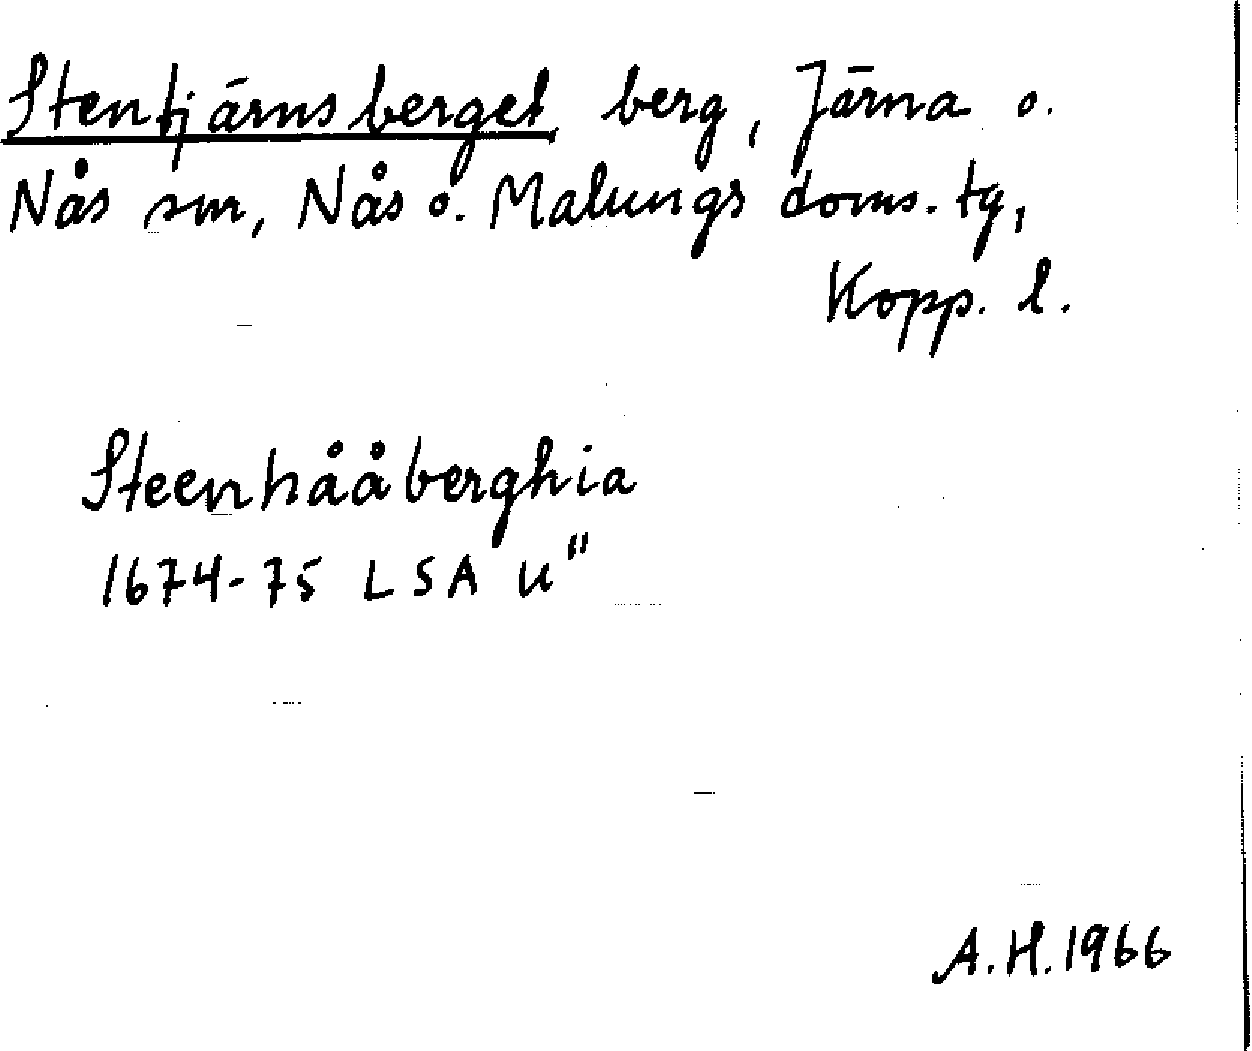 Stentjärnsberget berg, Järna o.
Nås snr, Nås o. Malungs doms. tg,
Kopp. l.
Steenhååberghia
1674-75 LSA u"
A.H. 1966